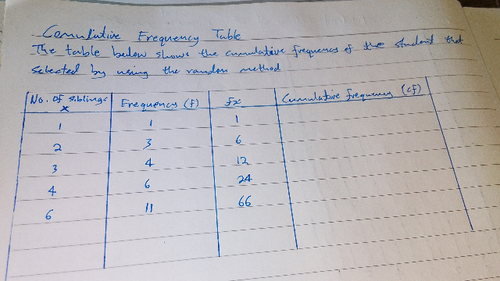 Cumulative Frequency Table
The table below shows the cumulative frequency of the student that
selected by using the random method
No. of siblings x Frequency (f) fx Cumulative frequency (cf)
1 1 1
2 3 6
3 4 12
4 6 24
6 11 66